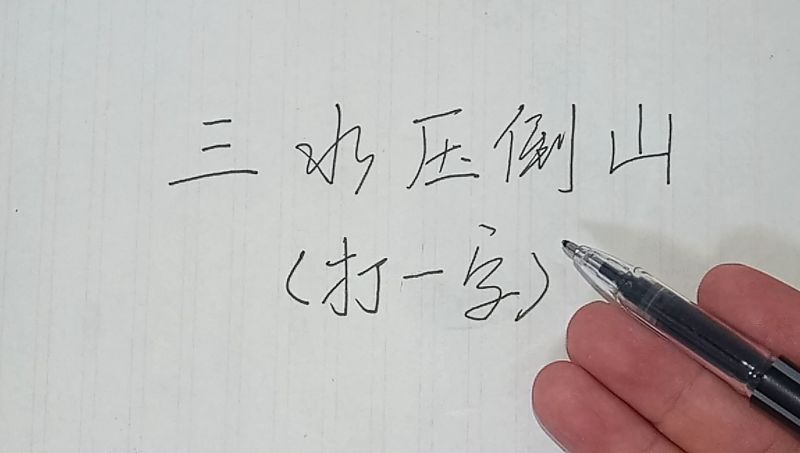 三水压倒山
(打一字)